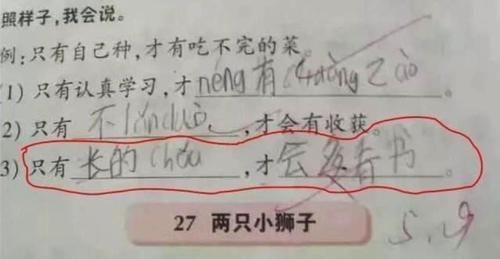 照样子,我会说。
例:只有自己种,才有吃不完的菜。
1) 只有认真学习,才néng有chuàng zào。
2) 只有不lǎnduò,才会有收获。
3) 只有长的chǒu,才会多看书。
27 两只小狮子